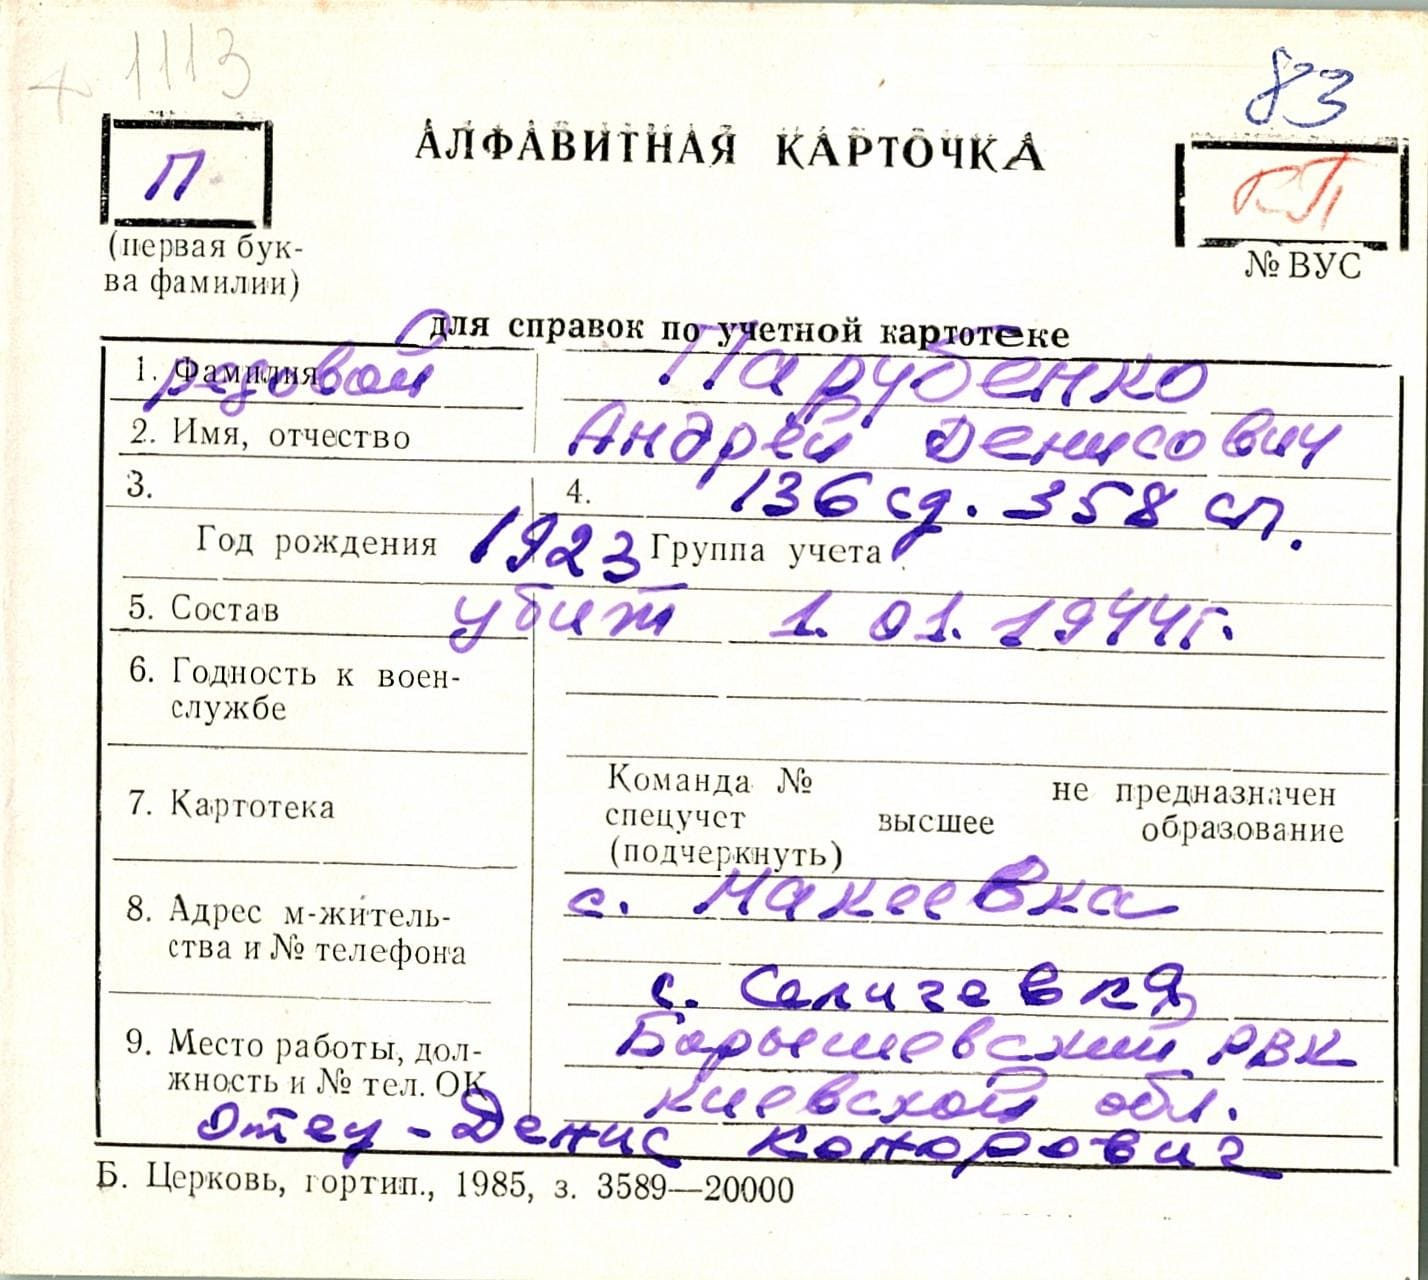 1113
83
П
АЛФАВИТНАЯ КАРТОЧКА
(первая бук-
ва фамилии)
№ ВУС
для справок по учетной картотеке
1. Фамилия
рядовой
Парубенко
2. Имя, отчество
Андрей Денисович
3.
4.
136 сд. 358 сп.
Год рождения 1923 Группа учета
5. Состав
убит 1.01.1944г.
6. Годность к воен-
службе
7. Картотека
Команда № не предназначен
спецучет высшее образование
(подчеркнуть)
8. Адрес м-житель-
ства и № телефона
с. Макеевка
с. Селичевка
9. Место работы, дол-
жность и № тел. ОК
Барышевский РВК
Киевской обл.
Отец - Денис Конорович
Б. Церковь, гортип., 1985, з. 3589—20000